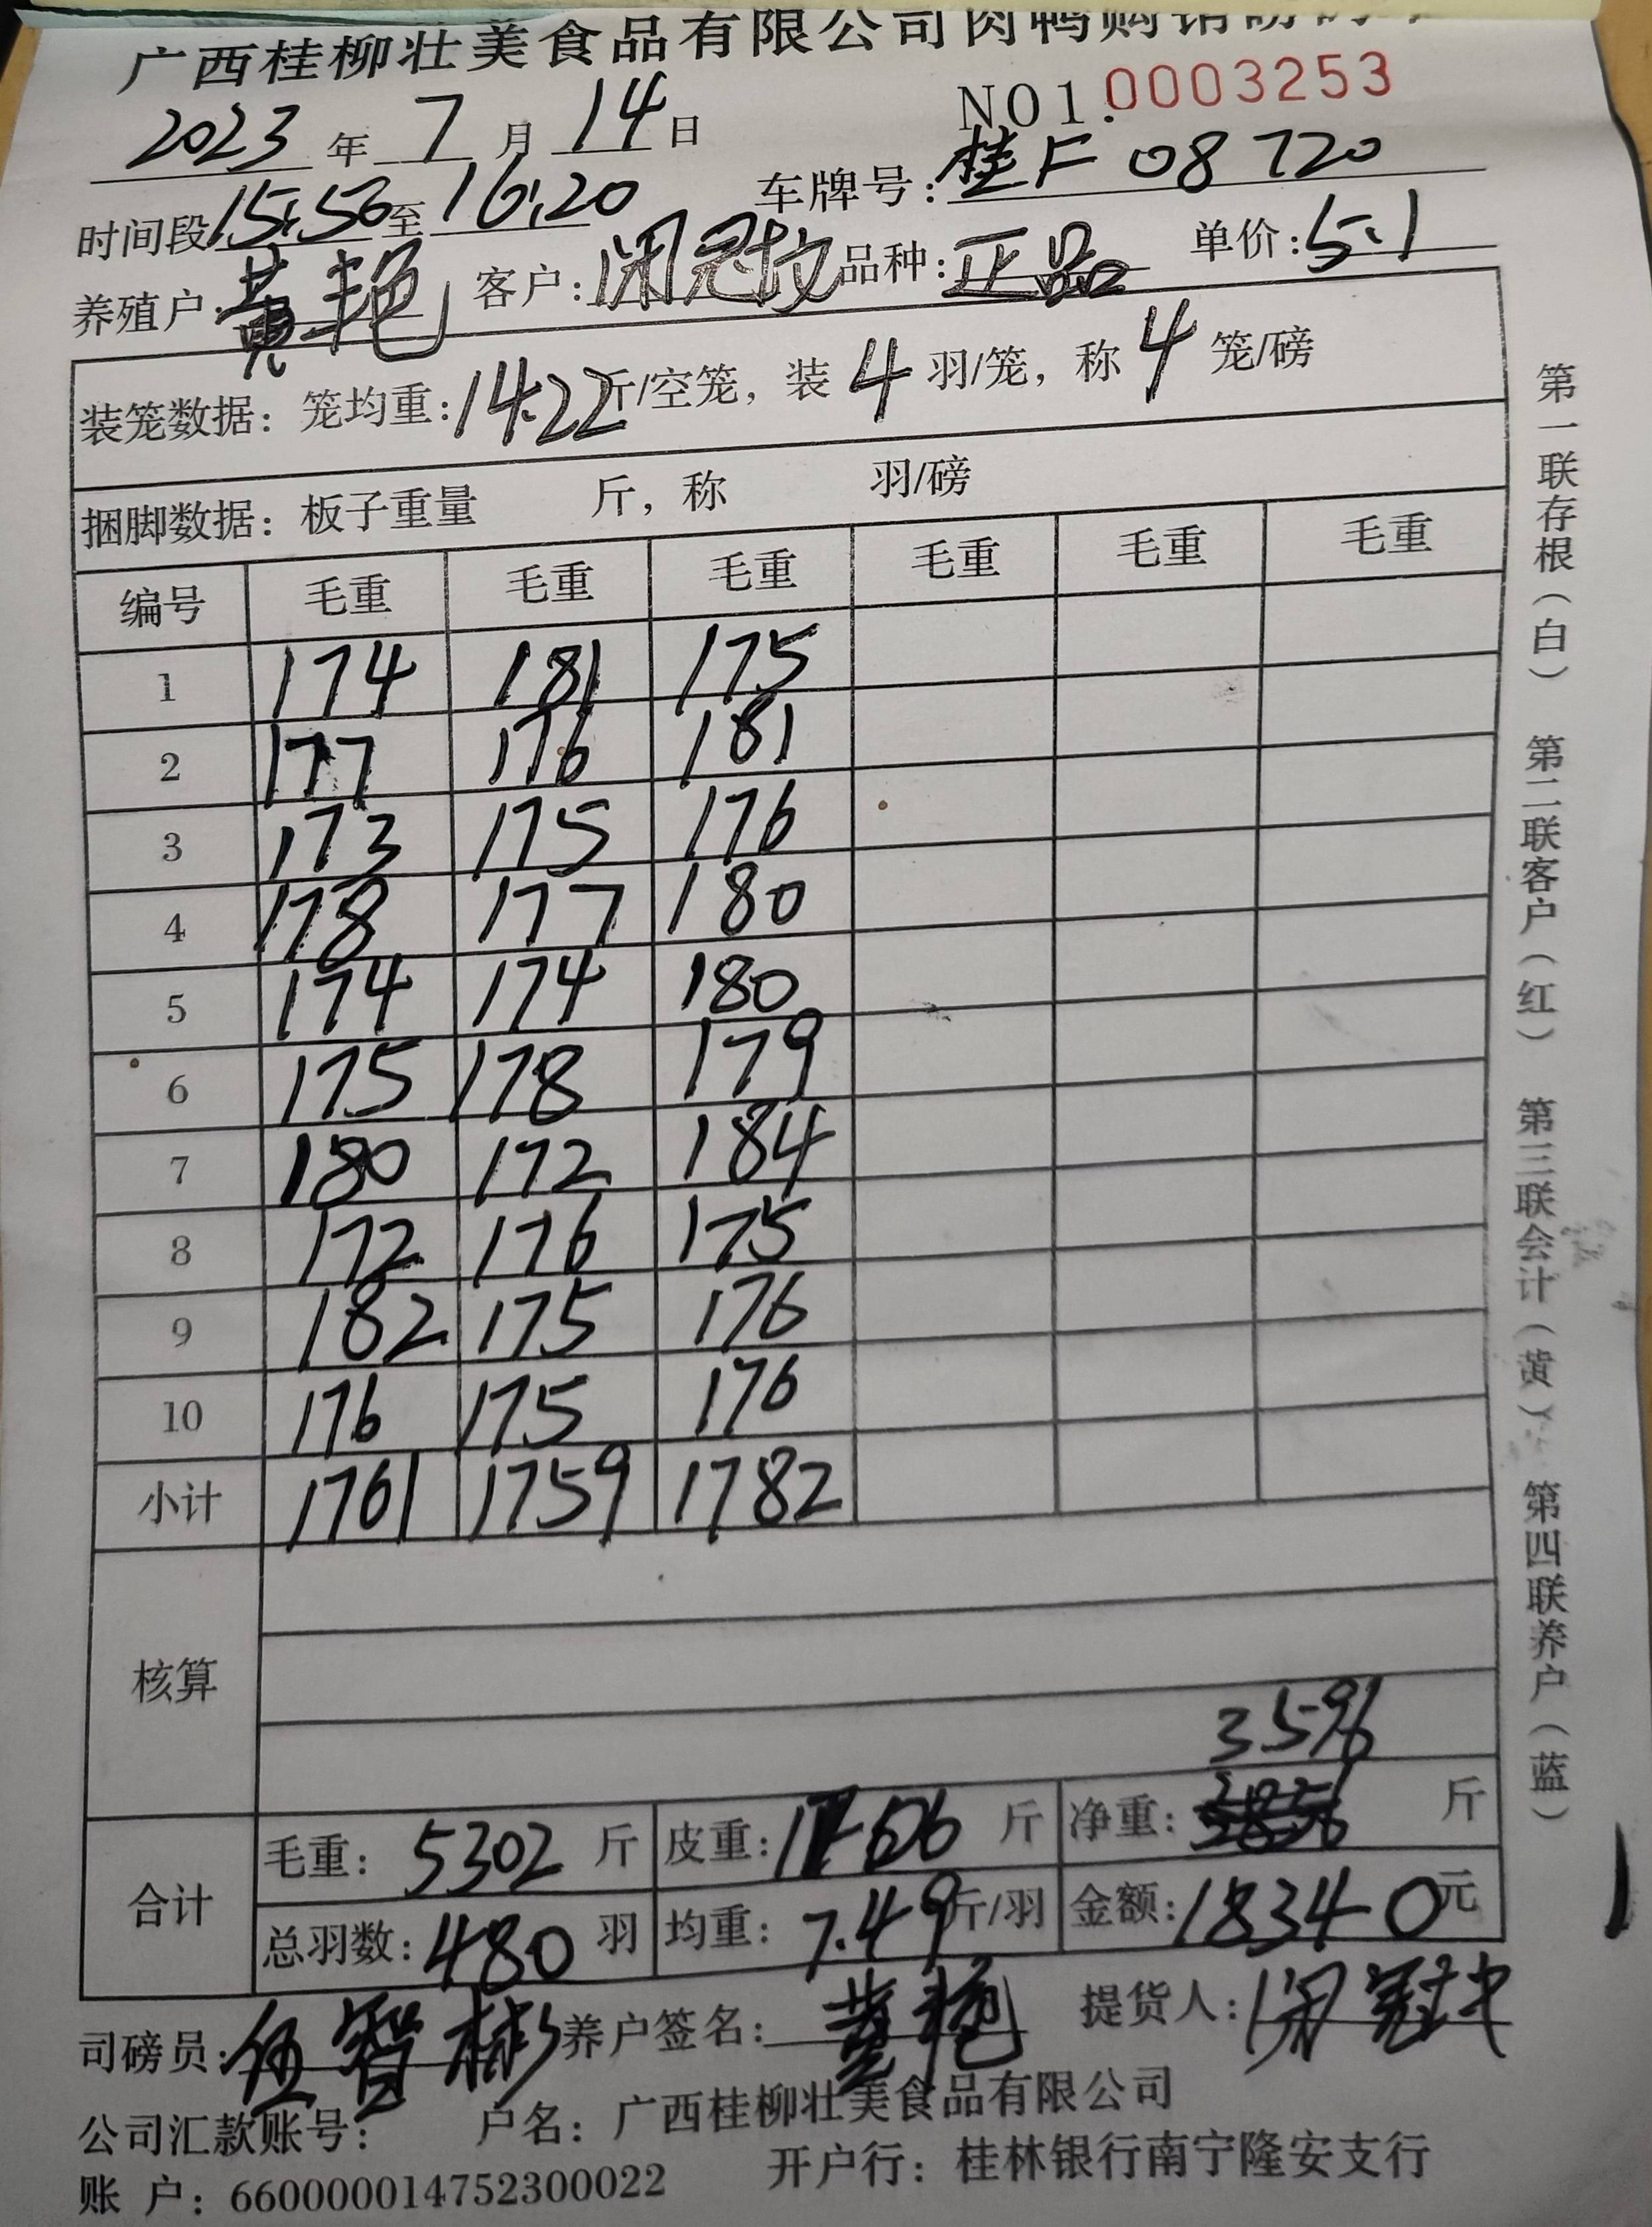 广西桂柳壮美食品有限公司肉鸭购销磅码单
2023年7月14日 NO1.0003253
时间段15:56至16:20 车牌号:桂F08720
养殖户:黄艳 客户: 品种:正品 单价:5.1
装笼数据:笼均重:14.22斤/空笼,装4羽/笼,称4笼/磅
捆脚数据:板子重量 斤,称 羽/磅
编号 毛重 毛重 毛重 毛重 毛重 毛重
1 174 181 175
2 177 176 181
3 173 175 176
4 178 177 180
5 174 174 180
6 175 178 179
7 180 172 184
8 172 176 175
9 182 175 176
10 176 175 176
小计 1761 1759 1782
核算
3596
合计 毛重:5302斤 皮重:斤 净重:斤
总羽数:480羽 均重:7.49斤/羽 金额:18340元
司磅员:伍智彬 养户签名:黄艳 提货人:
公司汇款账号: 户名:广西桂柳壮美食品有限公司
账 户:660000014752300022 开户行:桂林银行南宁隆安支行
第一联存根(白) 第二联客户(红) 第三联会计(黄) 第四联养户(蓝)